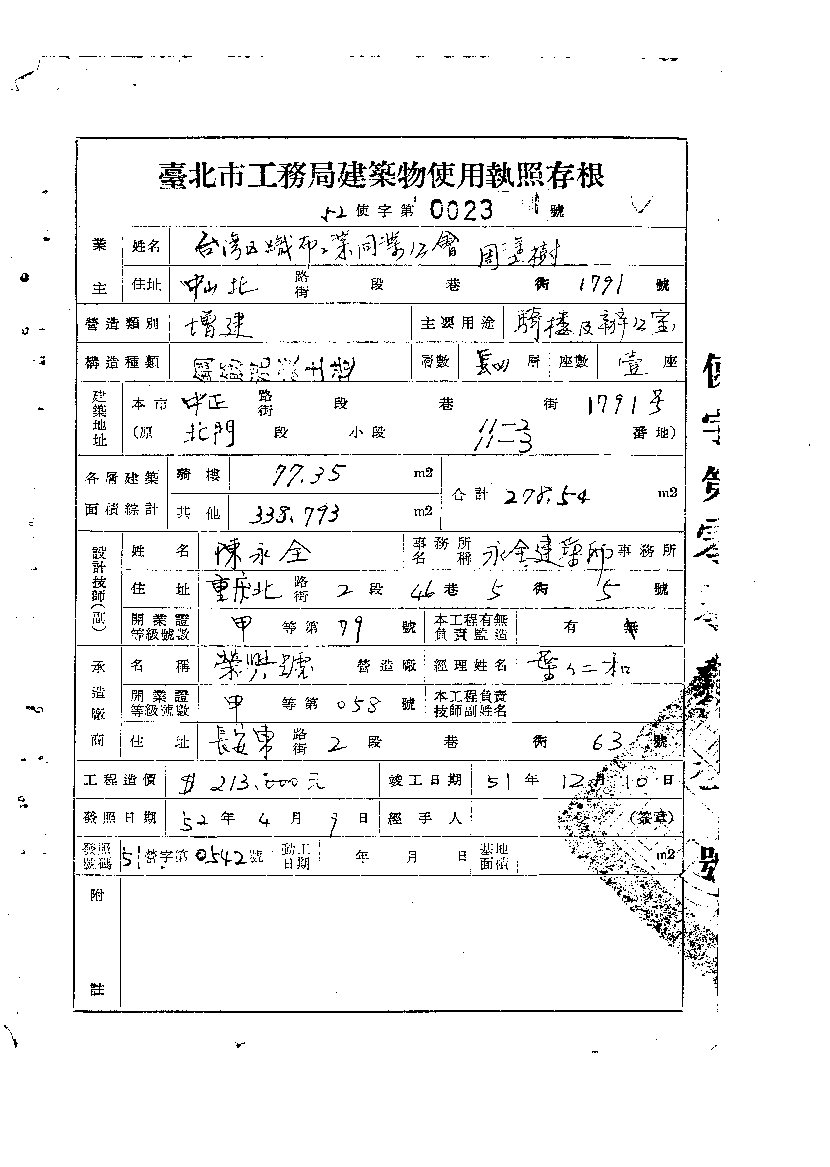 臺北市工務局建築物使用執照存根
52使字第 0023 號
業主 姓名 台灣區織布工業同業公會 周塗樹
住址 中山北 路街 段 巷 衖 1791 號
營造類別 增建 主要用途 騎樓及辦公室
構造種類 層數 層 座數 壹 座
建築地址 本市 中正 路街 段 巷 街 1791号
(原 北門 段 小段 番地)
各層建築面積綜計 騎樓 77.35 m2 合計 278.54 m2
其他 338.793 m2
設計技師(副) 姓名 陳永全 事務所名稱 永全建築師 事務所
住址 重慶北 路街 2 段 46 巷 5 衖 5 號
開業證等級號數 甲 等第 79 號 本工程有無負責監造 有 無
承造廠商 名稱 榮興號 營造廠 經理姓名 葉仁和
開業證等級號數 甲 等第 058 號 本工程負責技師副姓名
住址 長安東 路街 2 段 巷 衖 63 號
工程造價 $ 213.000元 竣工日期 51 年 12 月 10 日
發照日期 52 年 4 月 9 日 經手人 (簽章)
發照號碼 51營字第0542號 動工日期 年 月 日 基地面積 m2
附註